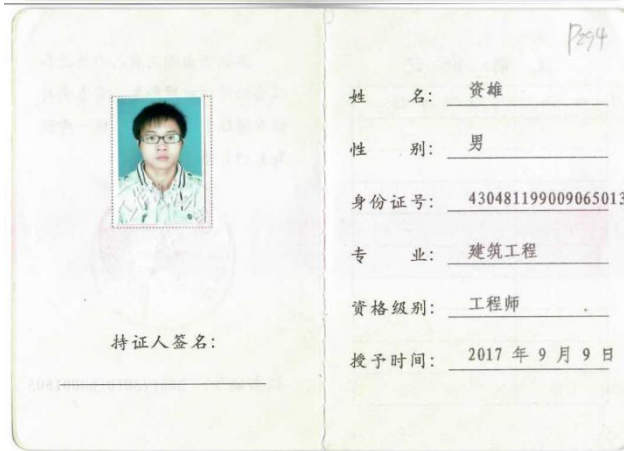 P294
姓 名: 资雄
性 别: 男
身份证号: 430481199009065013
专 业: 建筑工程
资格级别: 工程师
授予时间: 2017 年 9 月 9 日
持证人签名: